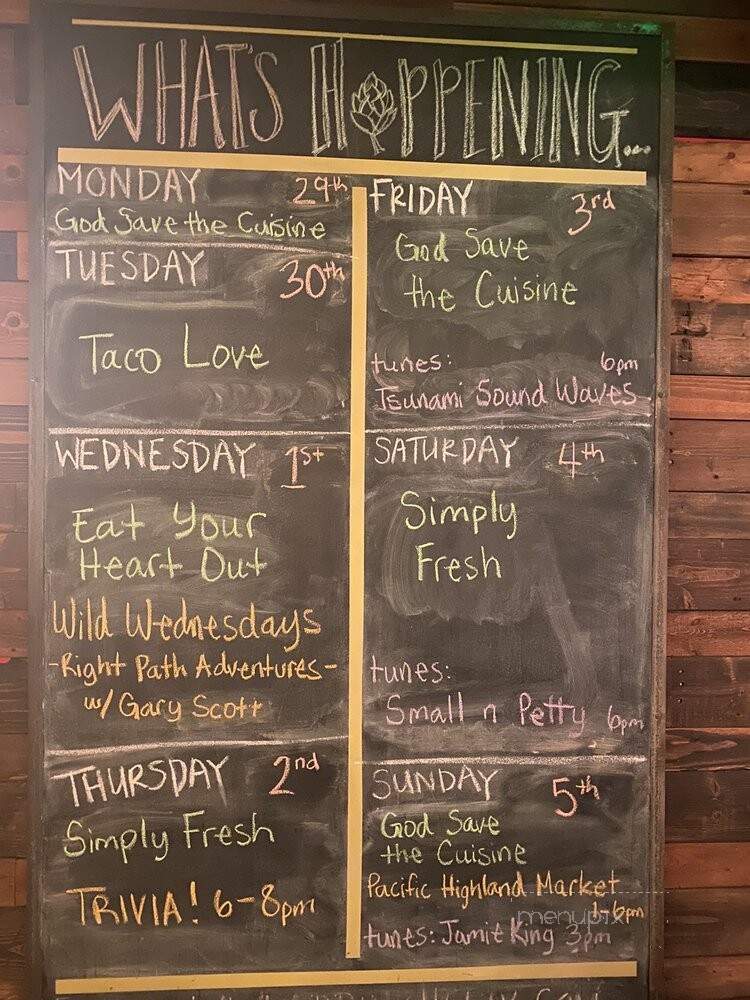 WHAT'S HOPPENING...
MONDAY 29th
God Save the Cuisine
TUESDAY 30th
Taco Love
WEDNESDAY 1st
Eat Your
Heart Out
Wild Wednesdays
-Right Path Adventures-
w/ Gary Scott
THURSDAY 2nd
Simply Fresh
TRIVIA! 6-8pm
FRIDAY 3rd
God Save
the Cuisine
tunes: 6pm
Tsunami Sound Waves
SATURDAY 4th
Simply
Fresh
tunes:
Small n Petty 6pm
SUNDAY 5th
God Save
the Cuisine
Pacific Highland Market
1-6pm
tunes: Jamie King 3pm
menupix